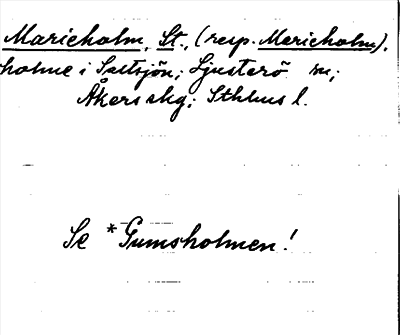 Marieholm, St., (resp. Marieholm),
holme i Saltsjön; Ljusterö sn;
Åkers skg; Sthlms l.
Se *Gumsholmen!